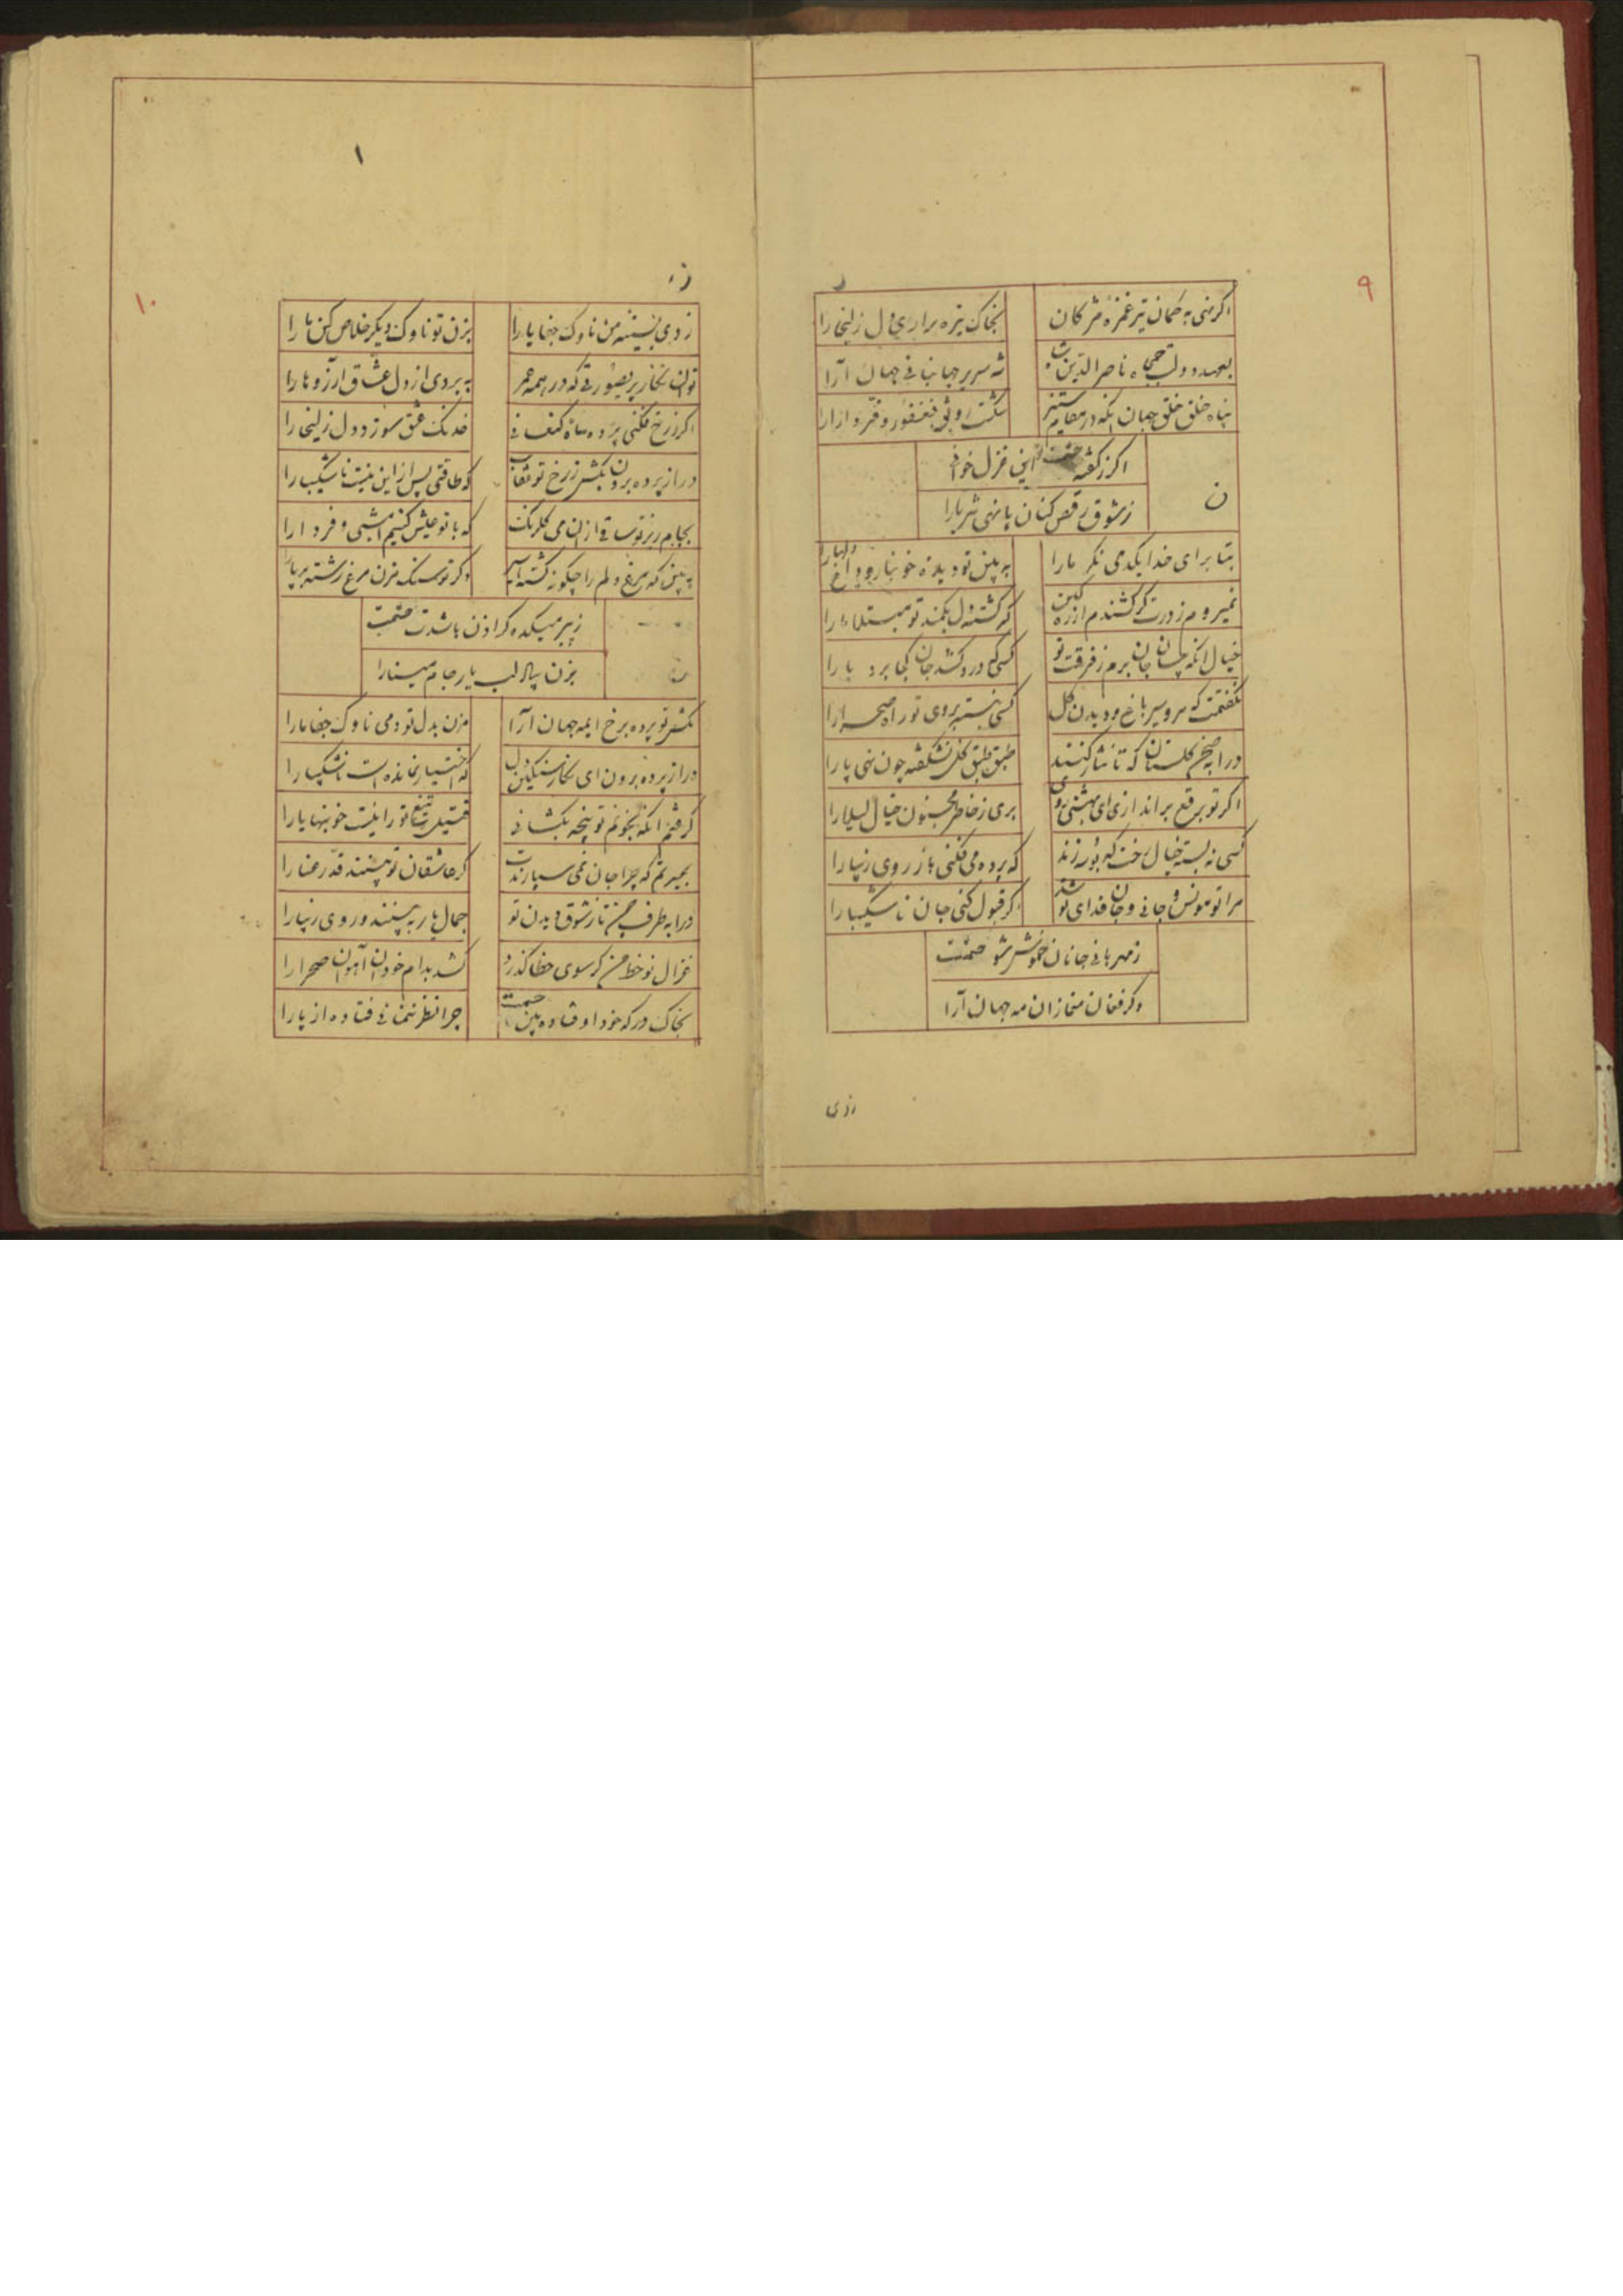 ۹
اگر نهی به کمان تیر غمزه مژگان
بخاک تیره براری دل زلیخا را
بعهد دولت جمجاه ناصرالدین شاه
شه سریر جهانبانی جهان آرا
پناه خلق جهان آنکه در
شکست رونق فغفور و فر دارا را
اگر ز گفته حشمت این غزل خواند
ن
ز شوق رقص کنان پا نهی ثریا را
بتا برای خدا یکدمی نگر ما را
به بین تو دیده خونبار و داغ دلها را
نمیروم ز درت گر کشندم از ره کین
که گشته دل بکمند تو مبتلا ما را
خیال آنکه چسان جان برم ز فرقت تو
کسی که درد کشد جان کجا برد یا را
نگفتمت که مرو سیر باغ و دیدن گل
کسی نبسته بروی تو راه صحرا را
درا بصحن گلستان که تا نثار کنند
طبق طبق گل نشکفته چون نهی پا را
اگر تو برقع براندازی ای بهشتی روی
بری ز خاطر مجنون خیال لیلا را
کسی نه بسته خیال رخت که بوسه زند
که پرده می فکنی باز روی زیبا را
مرا تو مونس جانی و جان فدای تو شد
اگر قبول کنی جان ناشکیبا را
ز مهربانی جانان خموش شو حشمت
وگر فغان منما زان مه جهان آرا
ازدی
۱
۱۰
زدی بسینه من ناوک جفا یارا
بزن تو ناوک دیگر خلاص کن ما را
توان نگار پریصورتی که در همه عمر
به بردی از دل عشاق آرزوها را
اگر ز رخ فکنی پرده ماه کنعانی
خدنگ عشق تو سوزد دل زلیخا را
درا ز پرده برون بکش ز رخ تو نقاب
که طاقتی پس از این نیست ناشکیبا را
بجام ریز تو ساقی از آن می گلرنگ
که با تو عیش کنیم امشبی و فردا را
به بین که مرغ دلم را چگونه کشته
وگر تو سنگ مزن مرغ رشته بر پا را
ز پیر میکده گر اذن باشدت حشمت
بزن پیاله لب یار جام مینا را
بکش تو پرده برخ ایمه جهان آرا
مزن بدل تو دمی ناوک جفا ما را
درا ز پرده برون ای نگار سنگین دل
که اختیار نمانده است ناشکیبا را
گرفتم آنکه بخونم تو پنجه بگشائی
قتیل تیغ تو را نیست خونبها یارا
بحیرتم که چرا جان نمی سپارندت
گر عاشقان تو بینند قد رعنا را
درا به طرف چمن تا ز شوق دیدن تو
جمال یار به بینند و روی زیبا را
غزال نو خط من گر سوی خطا گذرد
کشد بدام خود آن آهوان صحرا را
بخاک درگه خود اوفتاده بین حشمت
چرا نظر ننمائی فتاده از پا را